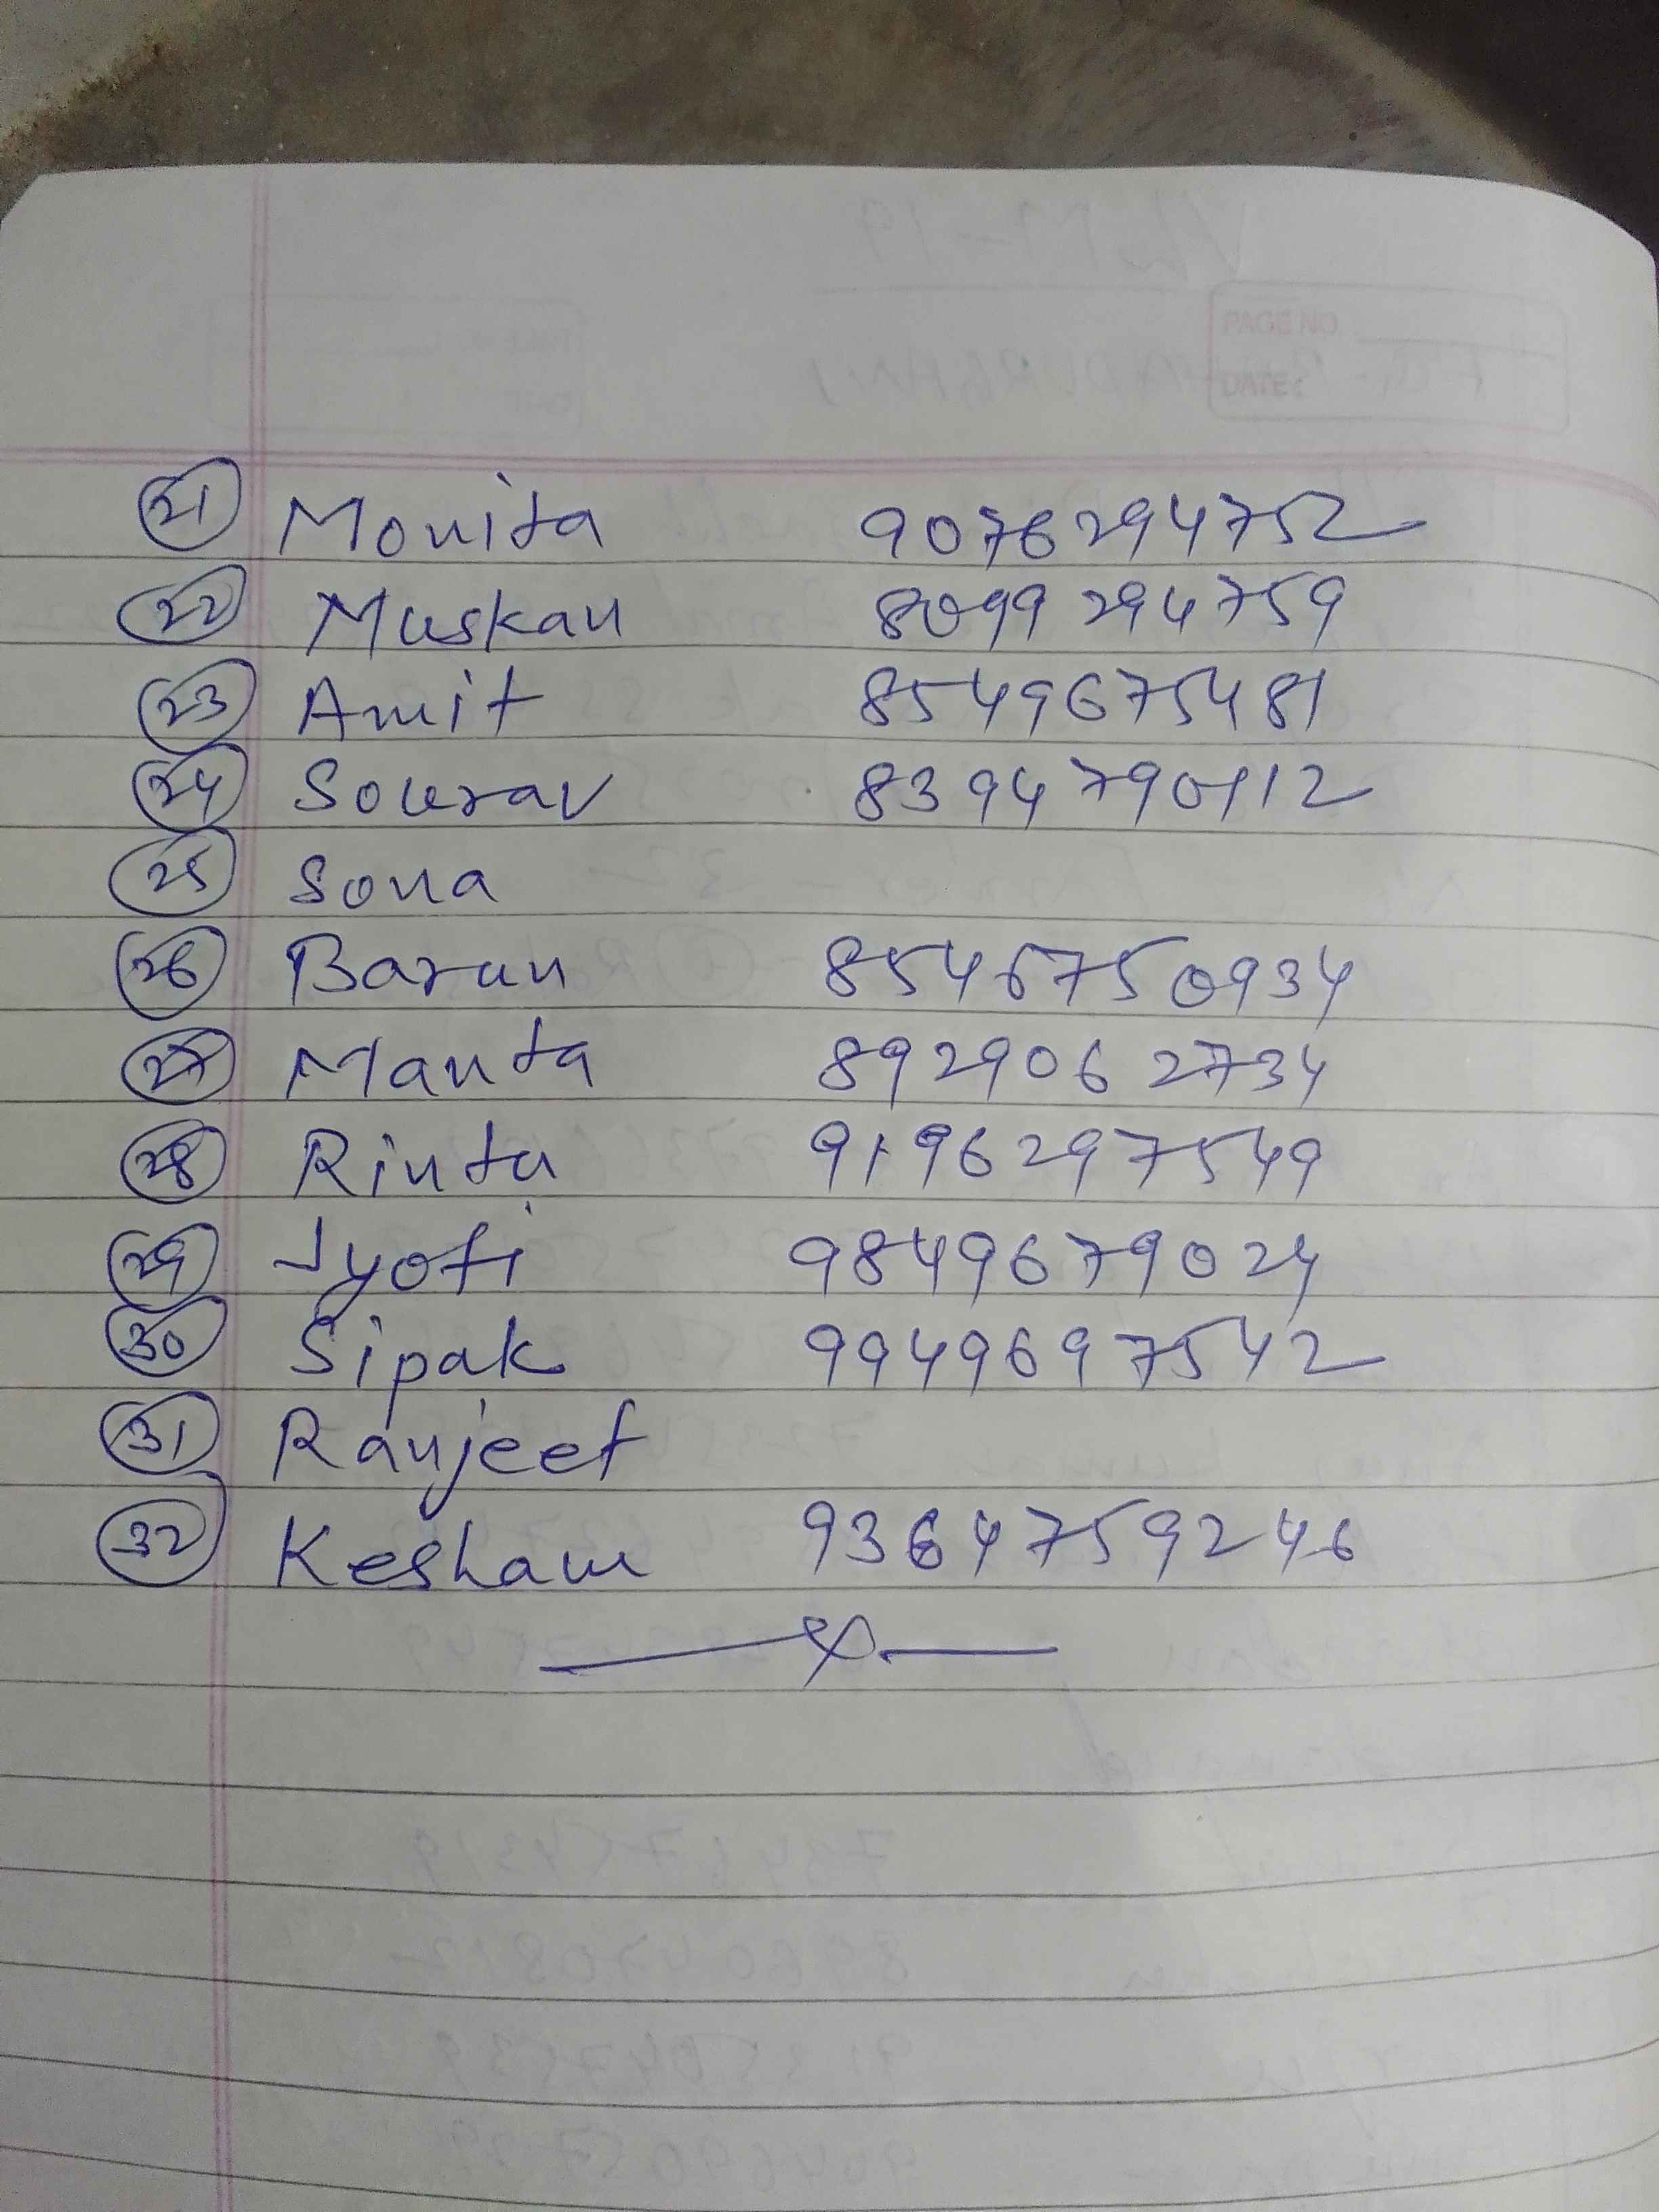 21 Monita 9076294752
22 Muskan 8099294759
23 Amit 8549675481
24 Sourav 8394790112
25 Sona
26 Barun 8546750934
27 Manta 8929062734
28 Rinta 9196297549
29 Jyoti 9849679024
30 Sipak 9949697542
31 Ranjeet
32 Kesham 9364759246
X
PAGE NO.
DATE: